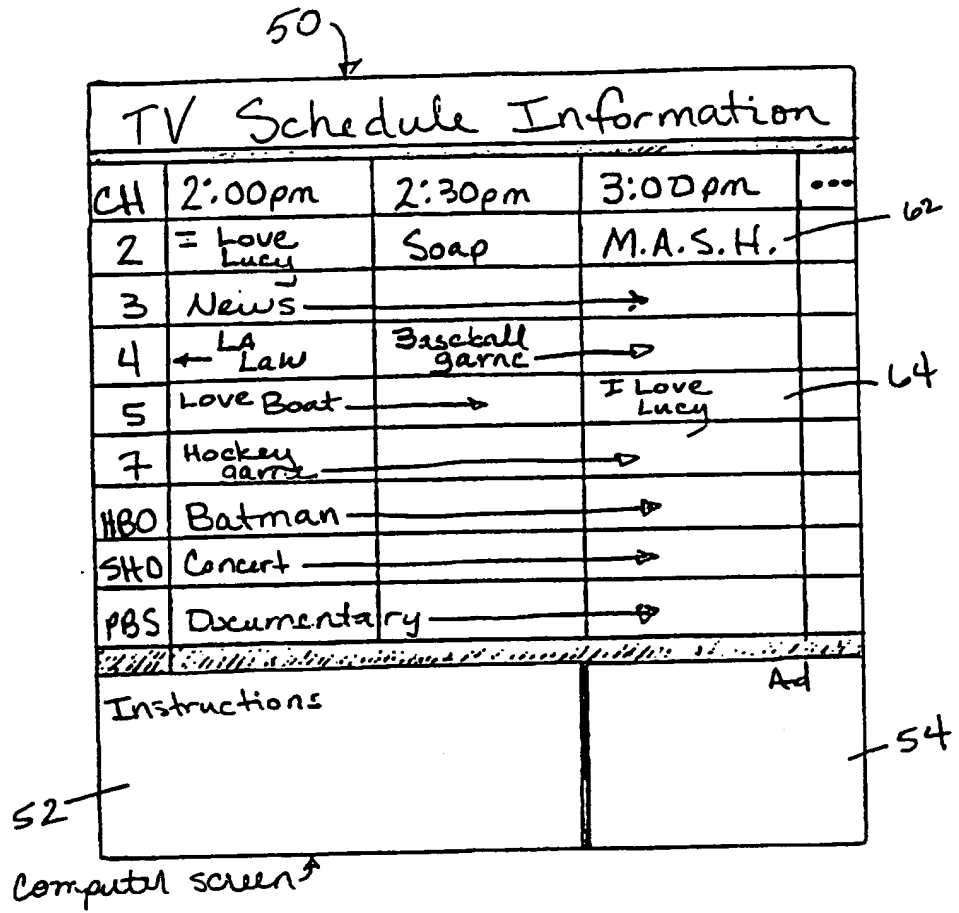 50
TV Schedule Information
CH 2:00pm 2:30pm 3:00pm ...
62
2 I Love Lucy Soap M.A.S.H.
3 News
4 LA Law Baseball game
64
5 Love Boat I Love Lucy
7 Hockey game
HBO Batman
SHO Concert
PBS Documentary
Instructions Ad
54
52
Computer screen